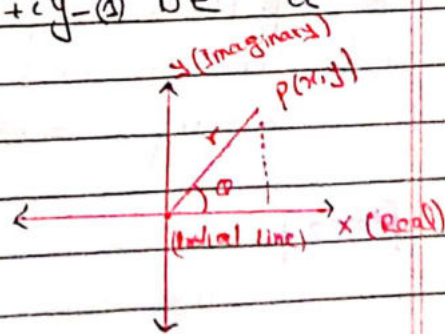 +iy-(1) be a
y (Imaginary)
P(x,y)
r
θ
(Initial line) X (Real)